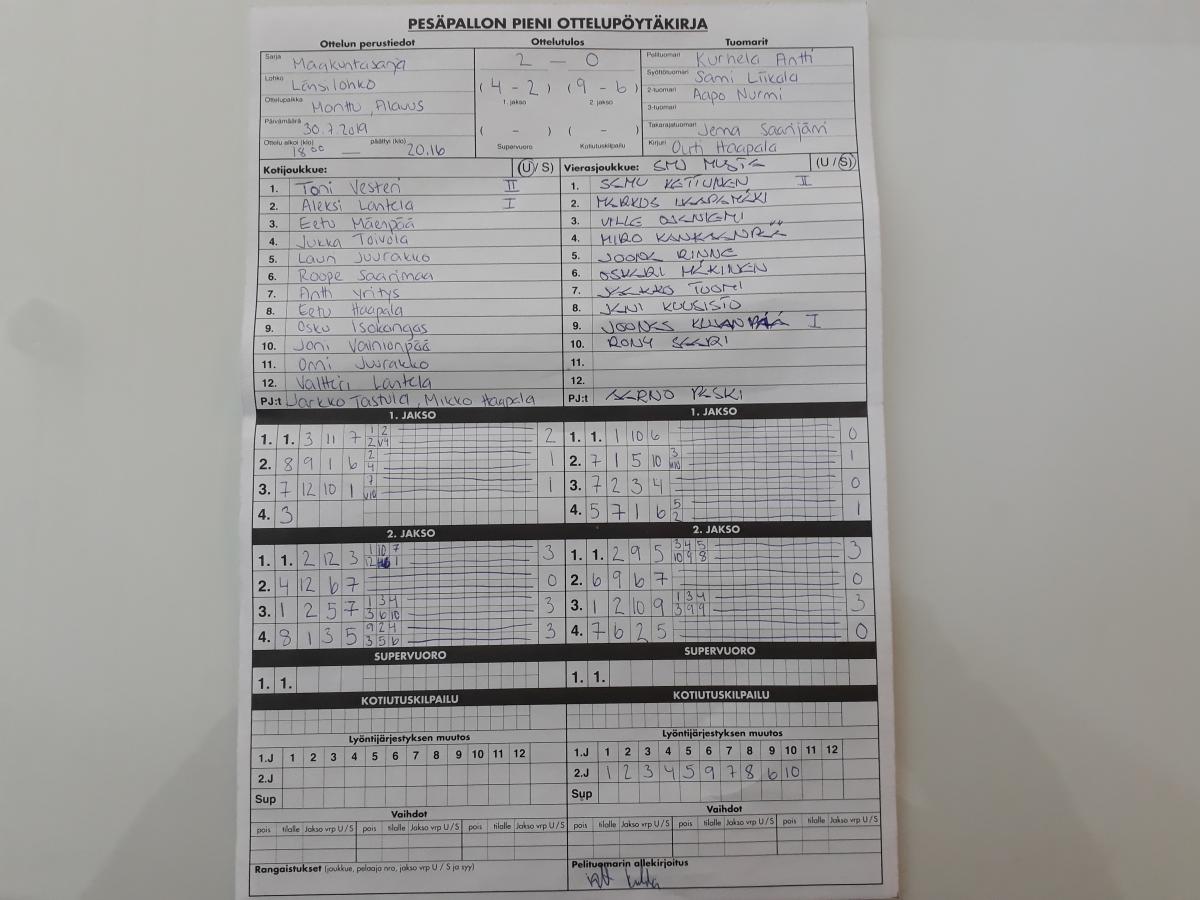 PESÄPALLON PIENI OTTELUPÖYTÄKIRJA
Ottelun perustiedot Ottelutulos Tuomarit
Sarja Maakuntasarja 2 – 0 Pelituomari Kurhela Antti
Lohko Länsilohko (4 - 2) (9 - 6) Syöttötuomari Sami Liikala
Ottelupaikka Monttu, Alavus 1. jakso 2. jakso 2-tuomari Aapo Nurmi
3-tuomari
Päivämäärä 30.7.2019 ( - ) ( - ) Takarajatuomari Jenna Saarijärvi
Ottelu alkoi (klo) 18 00 — päättyi (klo) 20.16 Supervuoro Kotiutuskilpailu Kirjuri Outi Haapala
Kotijoukkue: (U/ S) Vierasjoukkue: SMJ MUSTA (U /S)
1. Toni Vesteri II 1. SAMU KETTUNEN II
2. Aleksi Lantela I 2. MARKUS
3. Eetu Mäenpää 3. VILLE OJANIEMI
4. Jukka Toivola 4. MIRO KANKAANPÄÄ
5. Lauri Juurakko 5. JOONA RINNE
6. Roope Saarimaa 6. OSKARI MÄKINEN
7. Antti Yritys 7. JAAKKO TUOMI
8. Eetu Haapala 8. JANI KUUSISTO
9. Osku Isokangas 9. JOONAS I
10. Joni Vainionpää 10. RONY SAARI
11. Onni Juurakko 11.
12. Valtteri Lantela 12.
PJ:t Jarkko Tastula, Mikko Haapala PJ:t AARNO YASKI
1. JAKSO 1. JAKSO
1. 1. 3 11 7 1 2 2 V4 2 1. 1. 1 10 6 0
2. 8 9 1 6 2 4 1 2. 7 1 5 10 3 1
3. 7 12 10 1 7 V10 1 3. 7 2 3 4 0
4. 3 4. 5 7 1 6 5 2 1
2. JAKSO 2. JAKSO
1. 1. 2 12 3 1 10 7 12 1 3 1. 1. 2 9 5 3 4 5 10 9 8 3
2. 4 12 6 7 0 2. 6 9 6 7 0
3. 1 2 5 7 1 3 4 3 6 10 3 3. 1 2 10 9 1 3 4 3 9 9 3
4. 8 1 3 5 9 2 4 3 5 6 3 4. 7 6 2 5 0
SUPERVUORO SUPERVUORO
1. 1. 1. 1.
KOTIUTUSKILPAILU KOTIUTUSKILPAILU
Lyöntijärjestyksen muutos Lyöntijärjestyksen muutos
1.J 1 2 3 4 5 6 7 8 9 10 11 12 1.J 1 2 3 4 5 6 7 8 9 10 11 12
2.J 2.J 1 2 3 4 5 9 7 8 6 10
Sup Sup
Vaihdot Vaihdot
pois tilalle Jakso vrp U / S pois tilalle Jakso vrp U / S pois tilalle Jakso vrp U / S pois tilalle Jakso vrp U / S pois tilalle Jakso vrp U / S pois tilalle Jakso vrp U / S
Rangaistukset (joukkue, pelaaja nro, jakso vrp U / S ja syy) Pelituomarin allekirjoitus